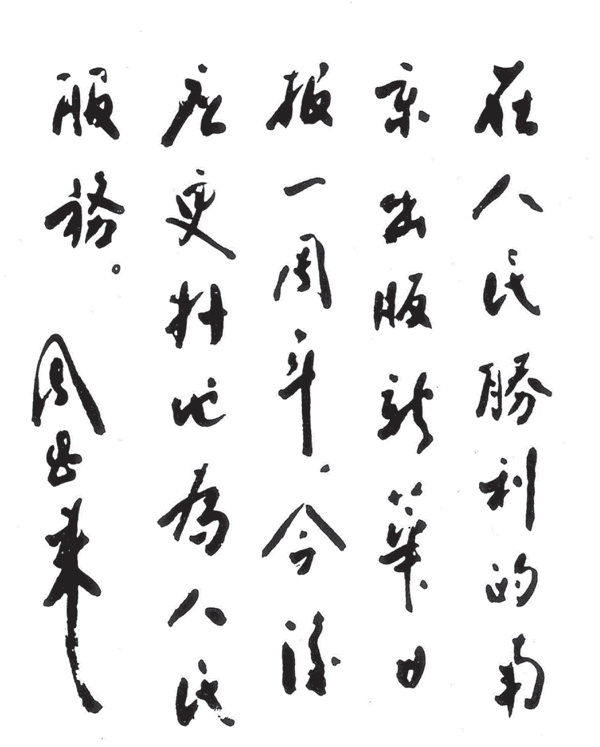 在人民勝利的南
京出版新華日
报一周年，今後
应更好地為人民
服務。 周恩来